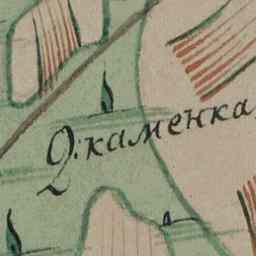 Д:каменка